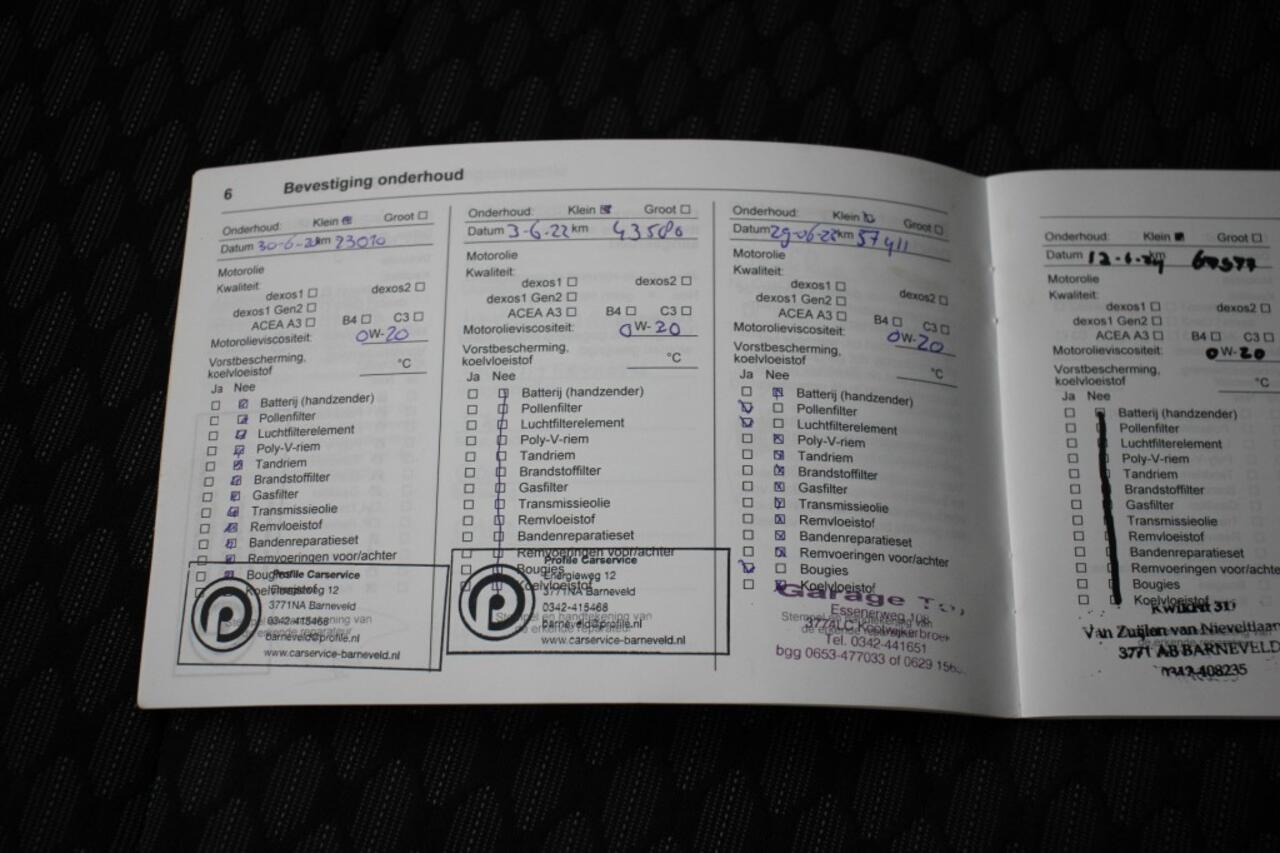 6 Bevestiging onderhoud
Onderhoud: Klein Groot
Datum km 23010
Motorolie
Kwaliteit:
dexos1 dexos2
dexos1 Gen2
ACEA A3 B4 C3
Motorolieviscositeit: 0W-20
Vorstbescherming,
koelvloeistof °C
Ja Nee
Batterij (handzender)
Pollenfilter
Luchtfilterelement
Poly-V-riem
Tandriem
Brandstoffilter
Gasfilter
Transmissieolie
Remvloeistof
Bandenreparatieset
Remvoeringen voor/achter
Bougies
Koelvloeistof
Profile Carservice
Energieweg 12
3771NA Barneveld
0342-415468
barneveld@profile.nl
www.carservice-barneveld.nl
Onderhoud: Klein Groot
Datum 3-6-22 km 43580
Motorolie
Kwaliteit:
dexos1 dexos2
dexos1 Gen2
ACEA A3 B4 C3
Motorolieviscositeit: 0W-20
Vorstbescherming,
koelvloeistof °C
Ja Nee
Batterij (handzender)
Pollenfilter
Luchtfilterelement
Poly-V-riem
Tandriem
Brandstoffilter
Gasfilter
Transmissieolie
Remvloeistof
Bandenreparatieset
Remvoeringen voor/achter
Bougies
Koelvloeistof
Profile Carservice
Energieweg 12
3771NA Barneveld
0342-415468
Stempel en handtekening van
de erkende reparateur
barneveld@profile.nl
www.carservice-barneveld.nl
Onderhoud: Klein Groot
Datum km 57411
Motorolie
Kwaliteit:
dexos1 dexos2
dexos1 Gen2
ACEA A3 B4 C3
Motorolieviscositeit: 0W-20
Vorstbescherming,
koelvloeistof °C
Ja Nee
Batterij (handzender)
Pollenfilter
Luchtfilterelement
Poly-V-riem
Tandriem
Brandstoffilter
Gasfilter
Transmissieolie
Remvloeistof
Bandenreparatieset
Remvoeringen voor/achter
Bougies
Koelvloeistof
Garage
Essenerweg 108
Stempel en handtekening van
3774LC Kootwijkerbroek
Tel. 0342-441651
bgg 0653-477033 of 0629
Onderhoud: Klein Groot
Datum 12-6-24 km
Motorolie
Kwaliteit:
dexos1 dexos2
dexos1 Gen2
ACEA A3 B4 C3
Motorolieviscositeit: 0W-20
Vorstbescherming,
koelvloeistof °C
Ja Nee
Batterij (handzender)
Pollenfilter
Luchtfilterelement
Poly-V-riem
Tandriem
Brandstoffilter
Gasfilter
Transmissieolie
Remvloeistof
Bandenreparatieset
Remvoeringen voor/achter
Bougies
Koelvloeistof
Van Zuijlen van Nieveltlaan
3771 AB BARNEVELD
0342-408235